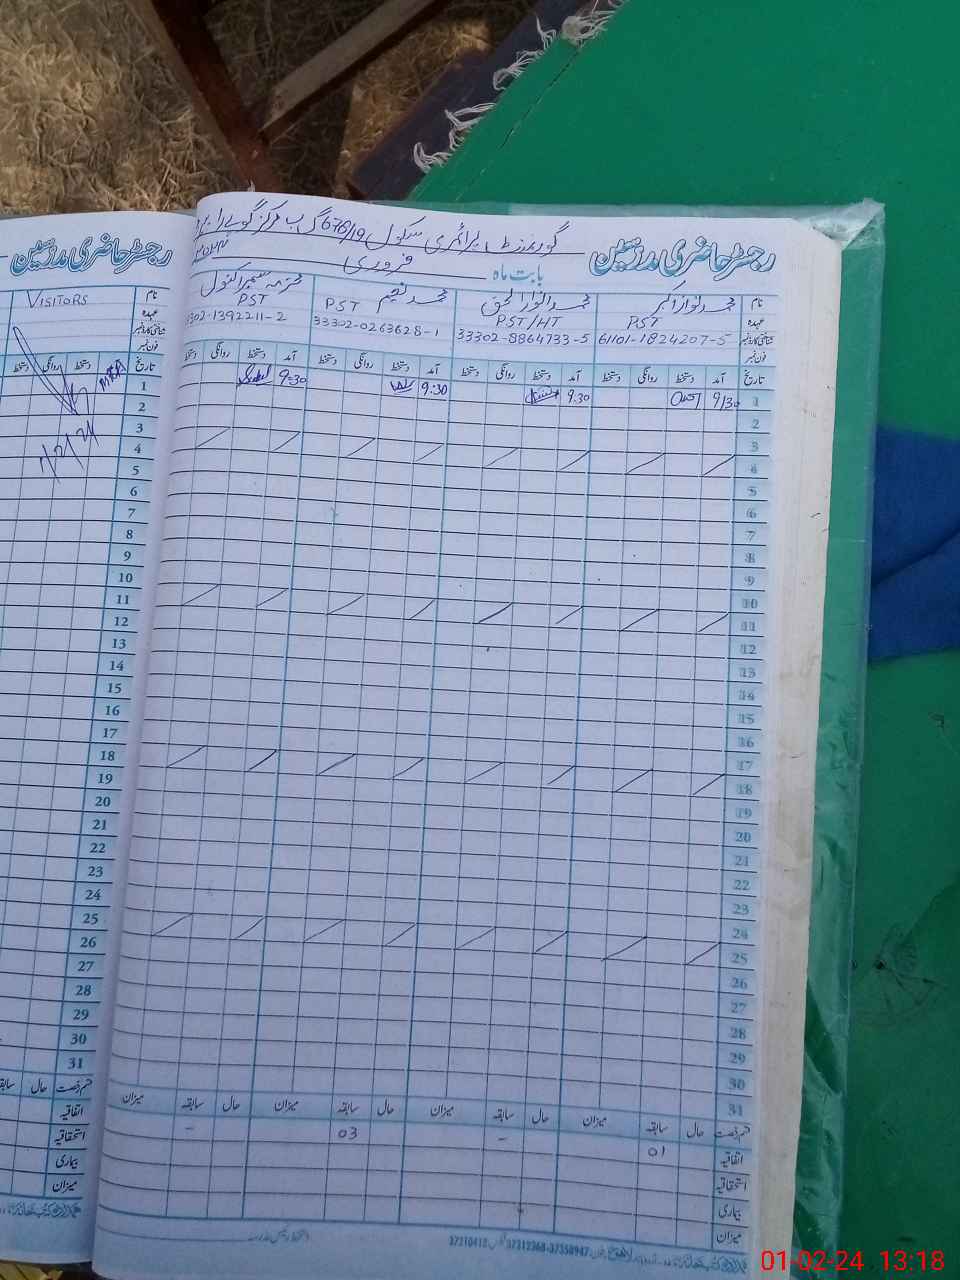 رجسٹر حاضری مدرسین
گورنمنٹ پرائمری سکول 676/19 گ ب مرکز گوہر
بابت ماہ فروری
رجسٹر حاضری مدرسین
نام محمد نواز اکبر محمد انوار الحق محمد نعیم محترمہ سمیرا کنول
عہدہ PST PST/HT PST PST
شناختی کارڈ نمبر 61101-1824207-5 33302-8864733-5 33302-0263628-1 302-1392211-2
فون نمبر
تاریخ آمد دستخط روانگی دستخط آمد دستخط روانگی دستخط آمد دستخط روانگی دستخط آمد دستخط روانگی دستخط
1 9/30 9.30 9:30 9:30
2
3
4
5
6
7
8
9
10
11
12
13
14
15
16
17
18
19
20
21
22
23
24
25
26
27
28
29
30
31
قسم رخصت حال سابقہ میزان حال سابقہ میزان حال سابقہ میزان حال سابقہ میزان
اتفاقیہ 01 - 03 -
استحقاقیہ
بیماری
میزان
37210418 37312368-37358947
نام VISITORS
عہدہ
شناختی کارڈ نمبر
فون نمبر
تاریخ دستخط روانگی دستخط
1
2
3
4
5
6
7
8
9
10
11
12
13
14
15
16
17
18
19
20
21
22
23
24
25
26
27
28
29
30
31
قسم رخصت حال سابقہ
اتفاقیہ
استحقاقیہ
بیماری
میزان
01-02-24 13:18